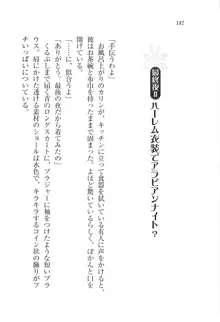 182
最終夜Ⅱ ハーレム衣装でアラビアンナイト？
「手伝うわよ」
お風呂上がりのカリンが、キッチンに立って食器を拭いている有人に声をかける。
彼はお茶碗と布巾を持ったまま、ぽかんと口を
「……に、似合う？」
「ありがとう。最後の夜だから着てみたの」
くるぶしまで届く青のロングスカートに、ブラジャーに袖をつけたような短いブラ
ウス。肩にかけた透ける素材のショールは水色で、キラキラするコイン状の飾りがフ
チいっぱいについている。